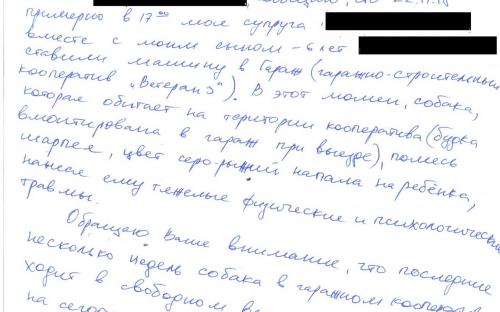 примерно в 17 00 моя супруга
вместе с моим сыном - 6 лет
ставили машину в Гараж (гаражно-строительный
кооператив „Ветеран 3"). В этот момен, собака,
которая обитает на територии кооператива (будка
вмонтирована в гараж при выезде), помесь
шарпея, цвет серо-рыжий напала на ребёнка,
нанеся ему тяжелые физические и психологические
травмы.
Обращаю Ваше внимание, что последние
несколько недель собака в гаражном кооперат
ходит в свободном
на сего